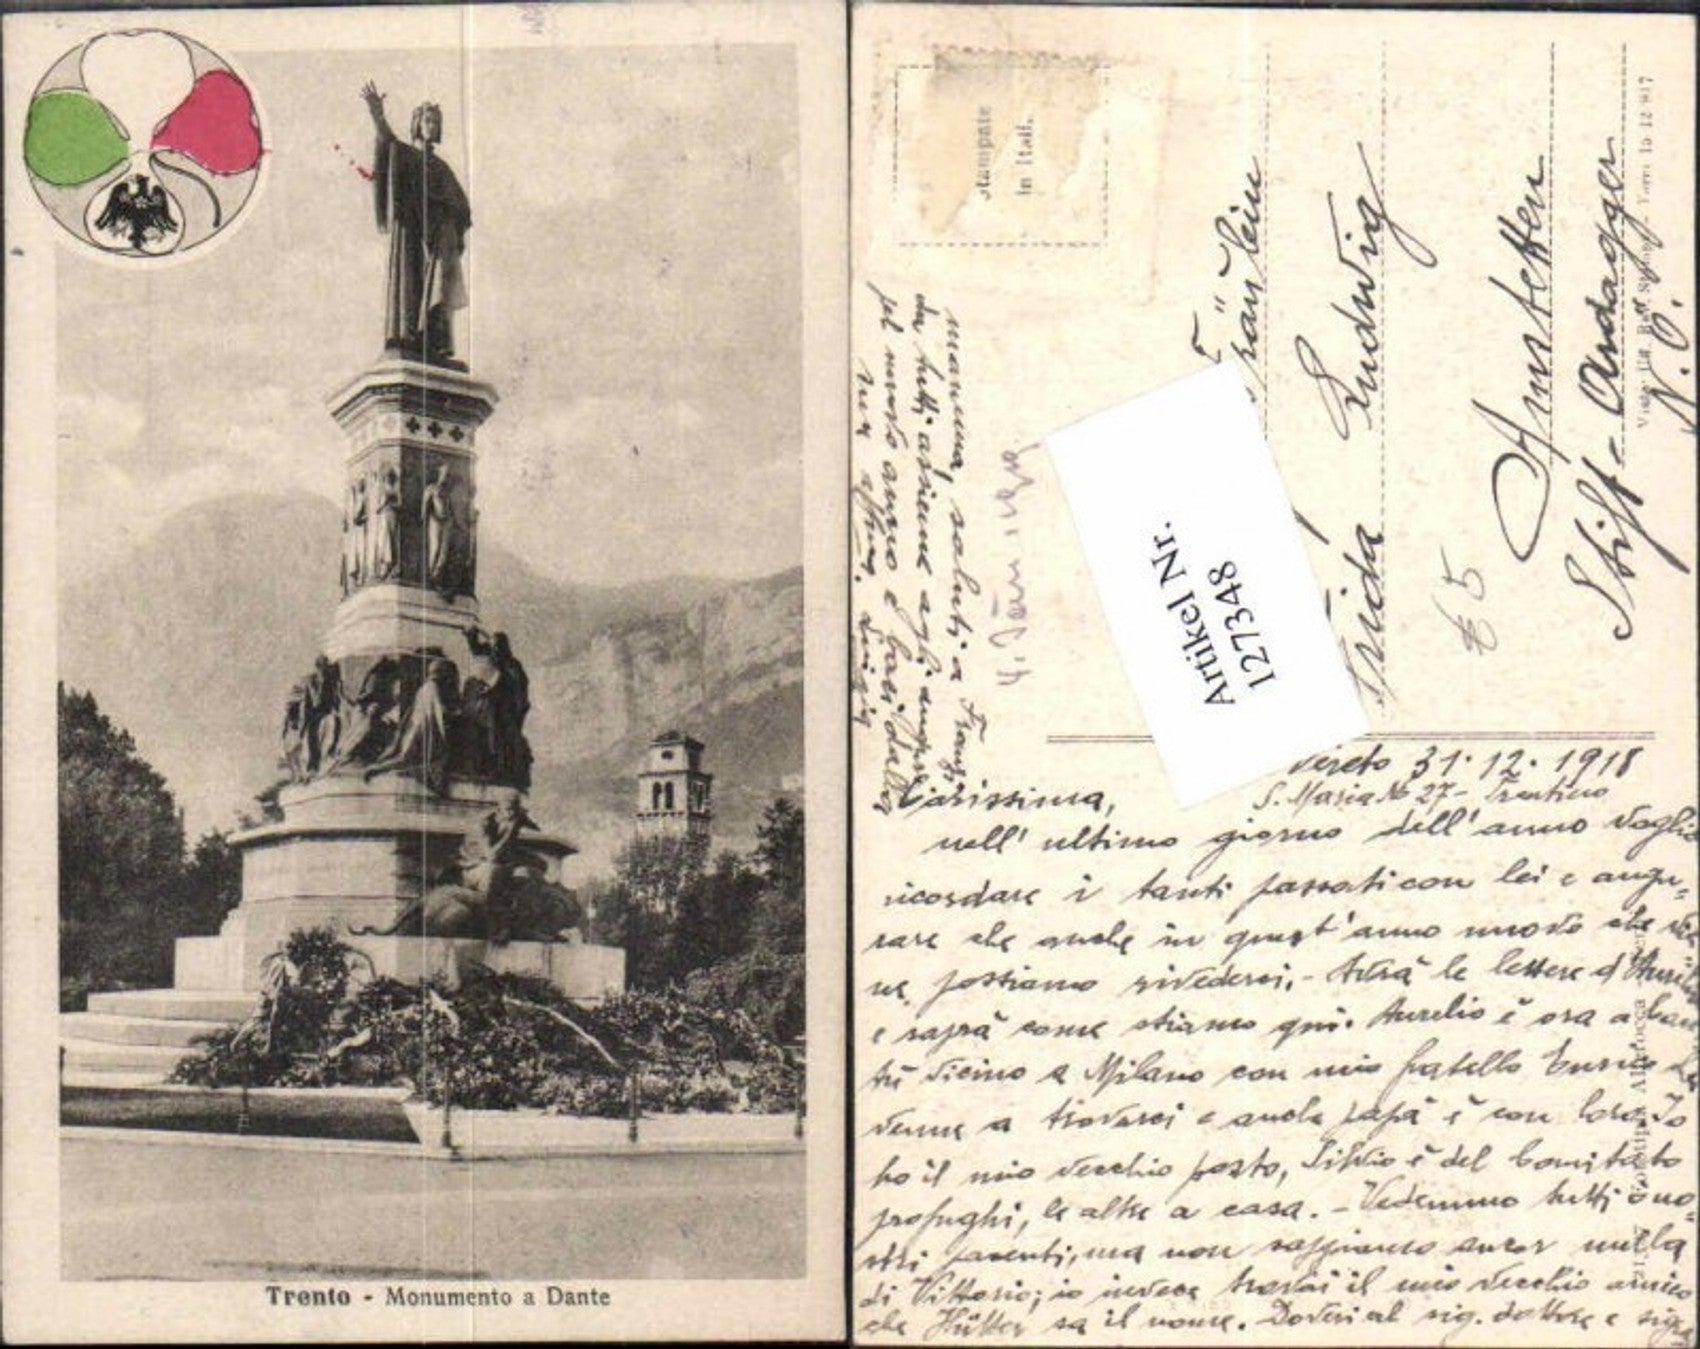 Trento - Monumento a Dante
stampate
in Ital.
Fräulein
Frida Ludwig
Amstetten
Stift - Ardagger
N. Ö.
₤ 5
Artikel Nr.
127348
31. 12. 1918
S. Maria No 27 - Trentino
Carissima,
nell' ultimo giorno dell'anno voglio
ricordare i tanti passati con lei e augu=
rare che anche in quest'anno nuovo che
possiamo rivederci. - Avrà le lettere d'
e saprà come stiamo qui. Aurelio è ora a
vicino a Milano con mio fratello
venne a trovarci e anche papà è con loro. Io
ho il mio vecchio posto, Silvio è del Comitato
profughi, le altre a casa. - Vedemmo tutti i no=
stri parenti, ma non sappiamo ancor nulla
di Vittorio; io invece trovai il mio vecchio amico
che Hütter sa il nome. Doveri al sig. dottore e
mamma, saluti a
da tutti assieme agli auguri
pel nuovo anno e baci dalla
sua affma. Luigia